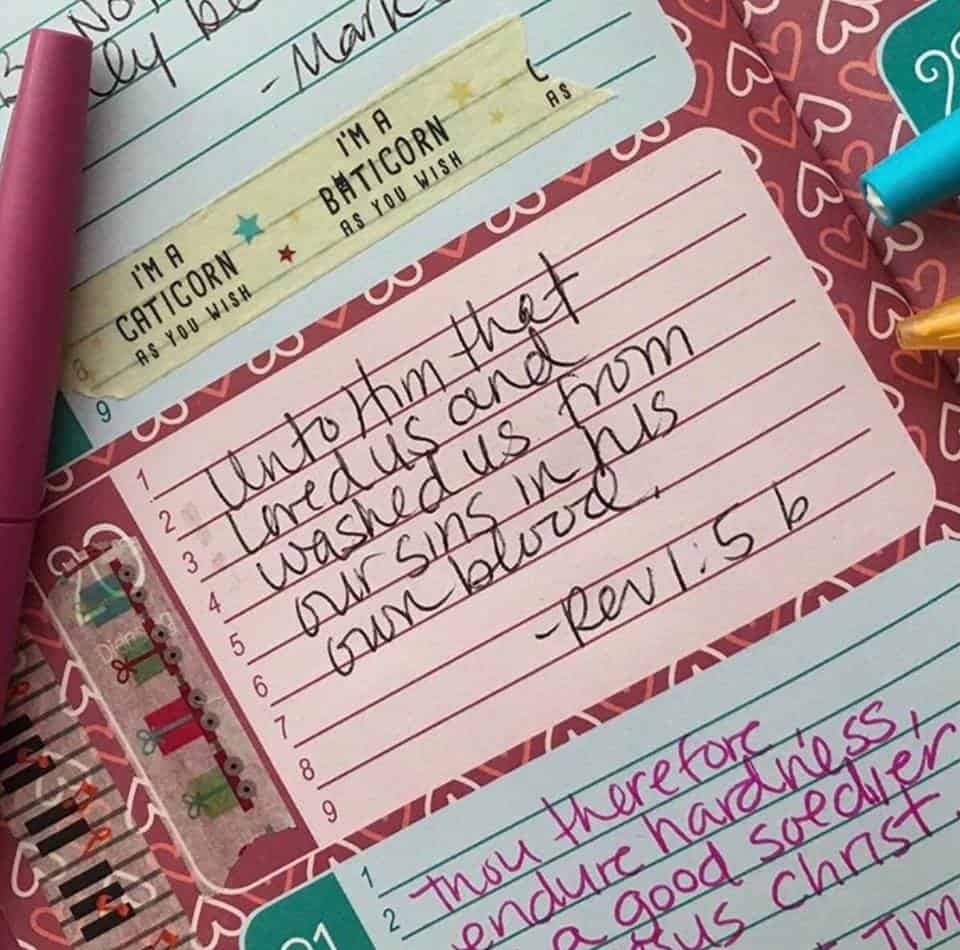 ly be
-Mark
I'M A
BATICORN
AS YOU WISH
AS
I'M A
CATICORN
AS YOU WISH
8
9
1
2
3
4
5
6
7
8
9
Unto Him that
loved us and
washed us from
our sins in his
own blood.
-Rev 1:5 b
29
Dienstag
21
1
2
Thou therefore,
endure hardness,
a good soldier
us Christ.
Tim